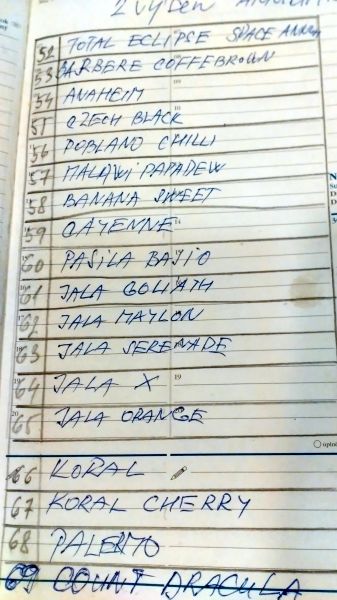 2 VÝDEN
52 TOTAL ECLIPSE SPACE
53 BARBERE COFFEBROWN
54 ANAHEIM
55 CZECH BLACK
56 POBLANO CHILLI
57 MALAWI PAPADEW
58 BANANA SWEET
59 CAYENNE
60 PASILA BAJIO
61 JALA GOLIATH
62 JALA MAYLON
63 JALA SERENADE
64 JALA X
65 JALA ORANGE
66 KORAL
67 KORAL CHERRY
68 PALERMO
69 COUNT DRACULA